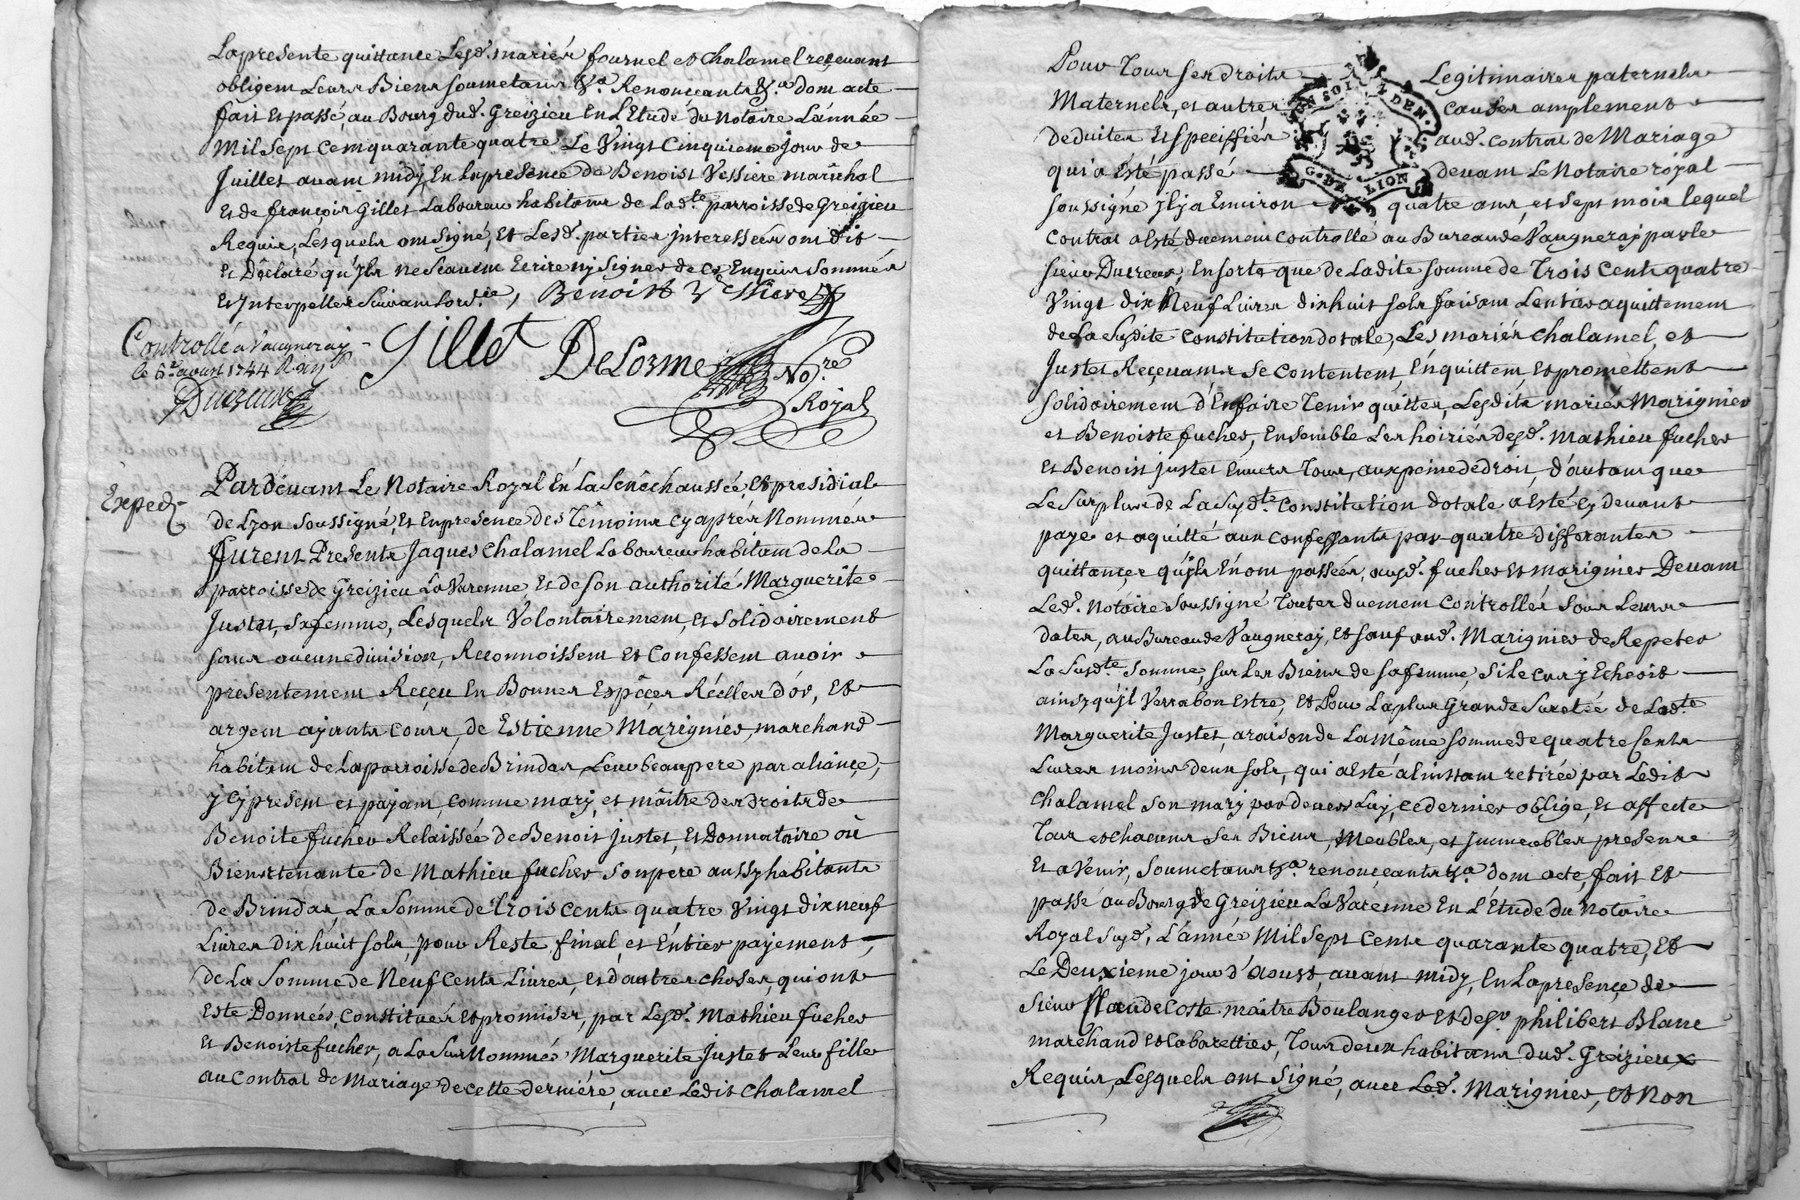 Lapresente quittance Lesd. mariés fournel et Chalamel reçevant
obligent Leurs Biens soumetans &a Renonceants &a dom acte
fait et passé, au Bourg dud. Greizieu En L'Etude du Notaire L'année
Mil Sept Cent quarante quatre Le Vingt Cinquieme jour de
Juillet avant midy, En Lapresence de Benoist Vessiere marêchal
et de françois Gillet Laboureur habitans de Lad.te parroisse de Greizieu
Requis, Lesquels ont Signé, et Lesd. parties jnteressées ont dit
et Dêclaré qu'jls ne Scavent Ecrire nj Signer de ce Enquis Sommés
et jnterpellés Suivant Lord.ce, Benoist Vessiere
Controllé a Vaugneray
le 6e aoust 1744 R
Ducreux
Gillet
DeLorme No.re
Royal
Exped.
Pardevant Le Notaire Royal En La Senêchaussée, et presidial
de Lyon Soussigné, Et En presence des Têmoins cy aprés Nommés
furent Presents Jaques Chalamel Laboureur habitant de La
parroisse de Greizieu La Varenne et de son authorité Marguerite
Justet, Sa femme, Lesquels Volontairement, et Solidairement
sans aucune division, Reconnoissent et Confessent avoir
presentement Reçeu En Bonnes Espêçes Réelles d'or, et
argent ajants cours, de Estienne Marignier, marchand
habitant de Laparroisse de Brindas Leur beaupere par aliançe,
jcy present et pajant, comme mary, et mâitre des droits de
Benoite fucher Relaissée de Benoit justet, et Donnataire où
Bienstenante de Mathieu fucher Son pere aussy habitants
de Brindas, La Somme de trois cents quatre Vingt dix neuf
Livres dix huit Sols, pour Reste final, et Entier payement,
de La Somme de Neuf Cents Livres, et d'autres choses, qui ont
Este Données, constituées et promises, par Lesd. Mathieu fucher
et Benoiste fucher, a La Sus Nommée Marguerite Justet Leur fille
au Contrat de Mariage de cette derniére, avec Ledit Chalamel
Pour Tous Ses droits Legitimaires paternels
Maternels, et autres causes amplement
deduites et Speciffiés aud. contrat de Mariage
qui a Esté passé devant Le Notaire röjal
Soussigné jl ja Environ quatre ans, et Sept mois lequel
Contrat a Esté duement controllé au Bureau de Vaugneray par le
Sieur Ducreux, En Sorte que de Ladite Somme de Trois Cent quatre
Vingt dix Neuf Livres dix huit Sols faisant Lentier aquittement
de La Susdite Constitution dotale, Les mariés Chalamel, et
Justet Reçevants Se Contentent, En quittent et promettent
Solidairement d'En faire Tenir quittes, Lesdits mariés Marignier
et Benoiste fucher, Ensemble Les hoiriés desd. Mathieu fucher
et Benoist justet Envers Tous, aux peine de droit, d'autant que
Le Surplus de La Susd.te Constitution dotale a Esté cy devant
paye et aquitté aux Confessants par quatre differantes
quittançes qu'jls En ont passées, ausd. fucher et Marignier Devant
Led. Notaire Soussigné Toutes duement Controllés Sous Leurs
dates, au Bureau de Vaugneray, et Sauf aud. Marignier de Repeter
La Susd.te Somme, Sur Les Biens de Sa femme, Si Le cas y Echeoit
ainsy qu'jl Verra bon Estre, et Pour La plus Grande Suretée de Lad.te
Marguerite Justet, a raison de La Même Somme de quatre Cents
Livres moins deux Sols, qui a Esté à Linstant retirée par Ledit
Chalamel Son mary par devers Luy, ce dernier oblige, et affecte
Tous et chacuns Ses Biens, Meubles, et jmmeubles presents
et avenir, Soumetans &a. renonçeants &a. dont acte, fait et
passé au Bourg de Greizieu La Varenne En L'Etude du Notaire
Royal Susd., L'année Mil Sept Cents quarante quatre, et
Le Deuxieme jour d'Aoust, avant midy, En La presençe de
Sieur Claude Coste maitre Boulanger et de Sr. philibert Blanc
marchand et Cabarettier, Tous deux habitans dud. Greizieux
Requis, Lesquels ont Signé, avec Led. Marignier, et Non
G. DE LION